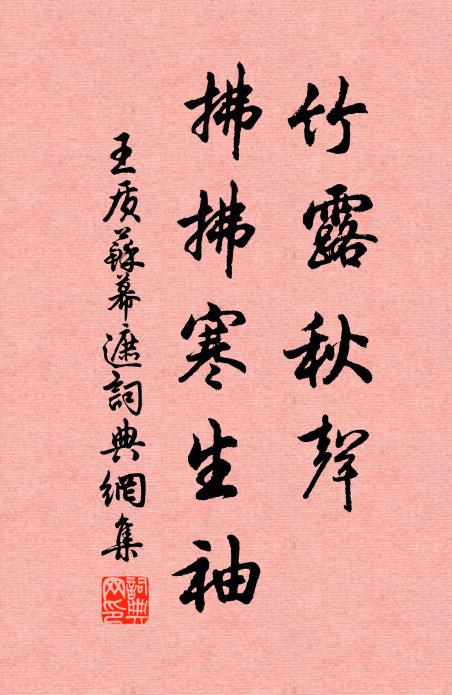 竹露秋聲
拂拂寒生袖
王质蘇幕遮詞典網集
詞典網印